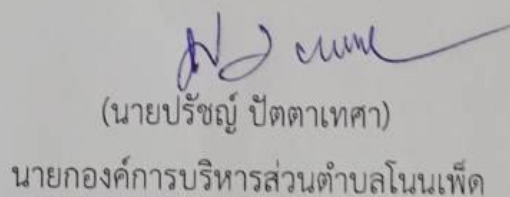 (นายปรัชญ์ ปัตตาเทศา)
นายกองค์การบริหารส่วนตำบลโนนเพ็ด